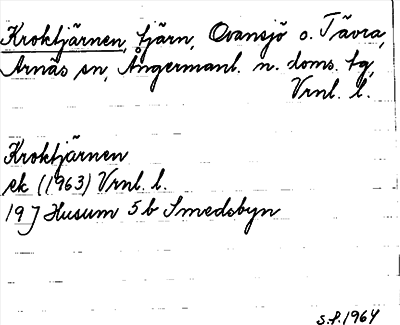 Kroktjärnen, tjärn, Ovansjö o. Tävra,
Arnäs sn, Ångermanl. n. doms. tg,
Vrnl. l.
Kroktjärnen
ek (1963) Vrnl. l.
19 J Husum 5b Smedsbyn
S.f. 1964